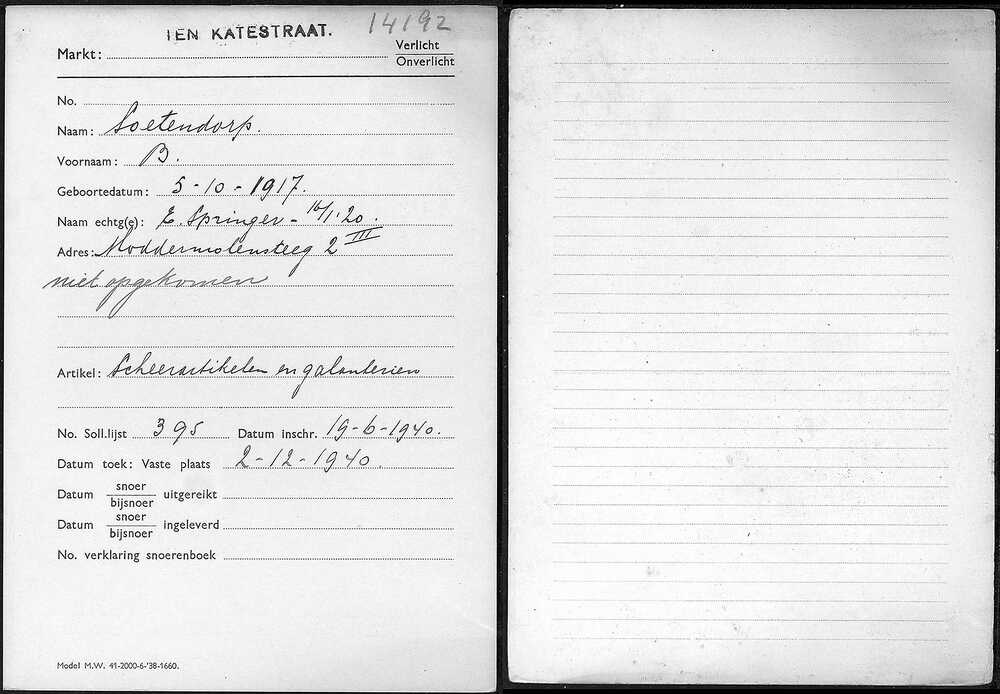 TEN KATESTRAAT. 14192
Markt: Verlicht
Onverlicht
No.
Naam: Soetendorp.
Voornaam: B.
Geboortedatum: 5-10-1917.
Naam echtg(e): E. Springer - 16/1 '20.
Adres: Moddermolensteeg 2 III
niet opgekomen
Artikel: Scheerartikelen en galanterien
No. Soll.lijst 395 Datum inschr. 19-6-1940.
Datum toek: Vaste plaats 2-12-1940.
Datum snoer uitgereikt
bijsnoer
Datum snoer ingeleverd
bijsnoer
No. verklaring snoerenboek
Model M.W. 41-2000-6-'38-1660.